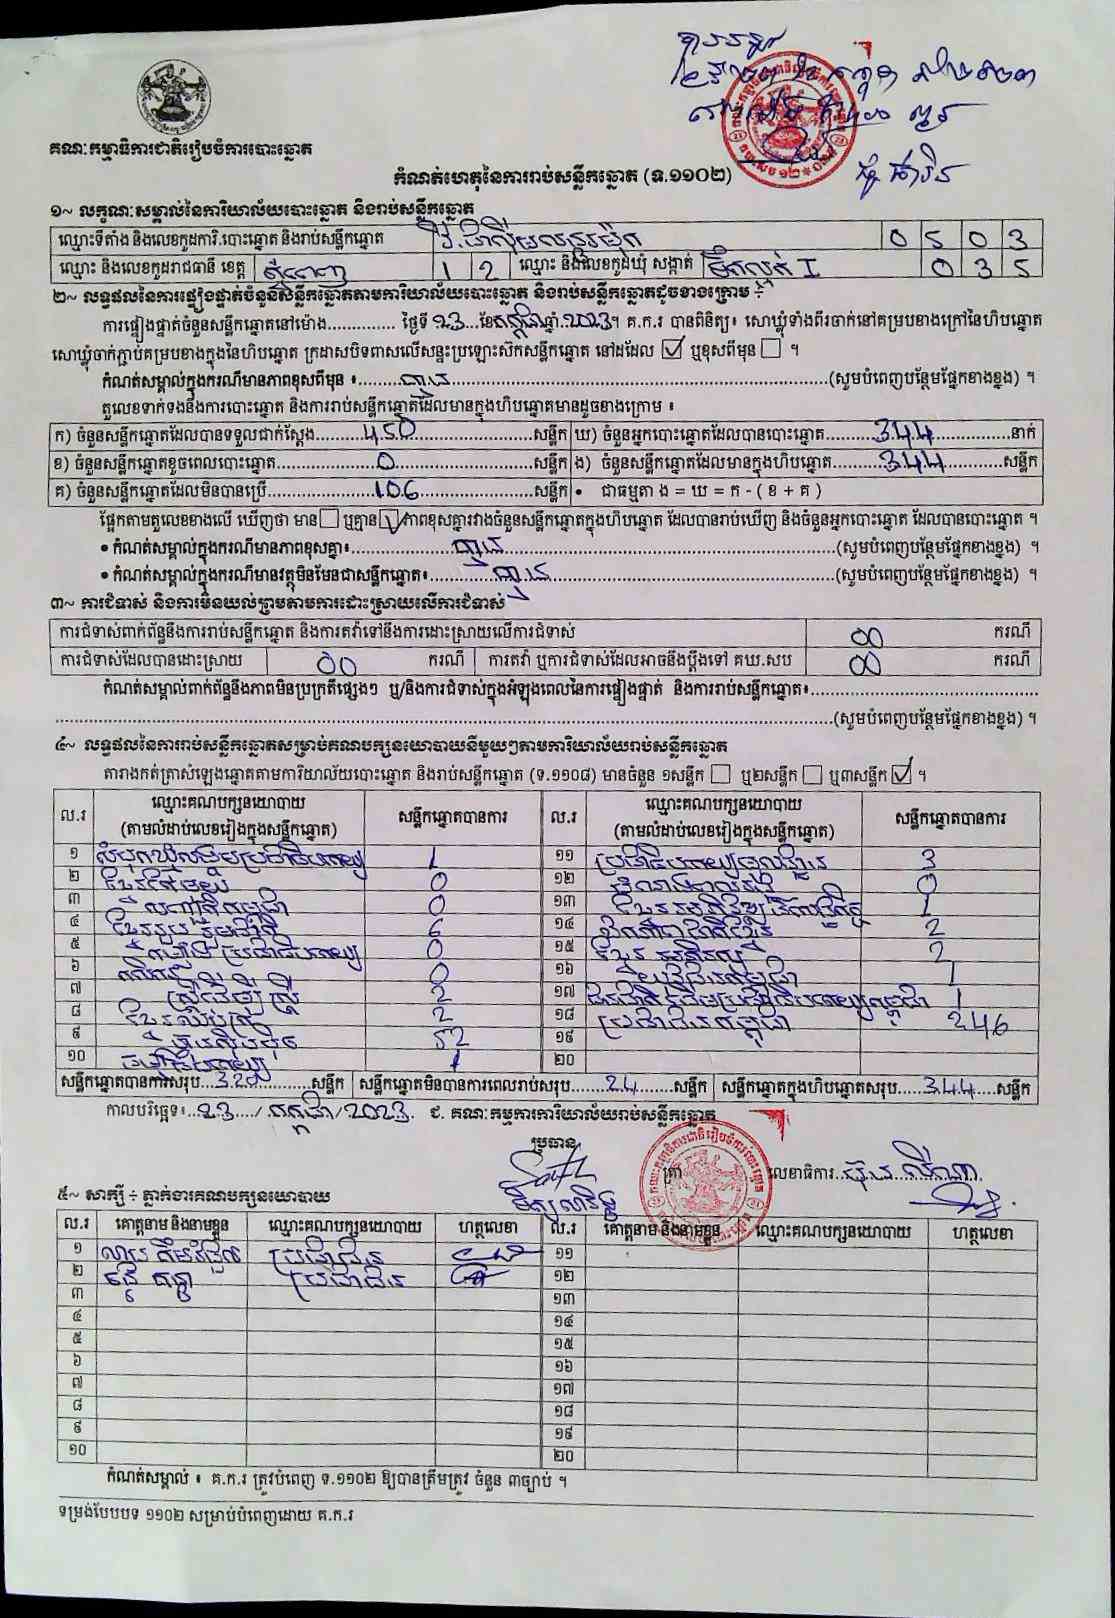 គណៈកម្មាធិការជាតិរៀបចំការបោះឆ្នោត
កំណត់ហេតុនៃការរាប់សន្លឹកឆ្នោត (ទ.១១០២)
១~ លក្ខណៈសម្គាល់នៃការិយាល័យបោះឆ្នោត និងរាប់សន្លឹកឆ្នោត
ឈ្មោះទីតាំង និងលេខកូដការិ.បោះឆ្នោត និងរាប់សន្លឹកឆ្នោត 0 5 0 3
ឈ្មោះ និងលេខកូដរាជធានី ខេត្ត ភ្នំពេញ 1 2 ឈ្មោះ និងលេខកូដឃុំ សង្កាត់ ទឹកល្អក់ I 0 3 5
២~ លទ្ធផលនៃការផ្ទៀងផ្ទាត់ចំនួនសន្លឹកឆ្នោតតាមការិយាល័យបោះឆ្នោត និងរាប់សន្លឹកឆ្នោតដូចខាងក្រោម ÷
ការផ្ទៀងផ្ទាត់ចំនួនសន្លឹកឆ្នោតនៅម៉ោង.............. ថ្ងៃទី 23 ខែ កក្កដា ឆ្នាំ 2023 ។ គ.ក.រ បានពិនិត្យ៖ សោឃ្លុំទាំងពីរចាក់នៅគម្របខាងក្រៅនៃហិបឆ្នោត
សោឃ្លុំចាក់ភ្ជាប់គម្របខាងក្នុងនៃហិបឆ្នោត ក្រដាសបិទពាសលើសន្ទះប្រឡោះស៊កសន្លឹកឆ្នោត នៅដដែល ☑ ឬខុសពីមុន ☐ ។
កំណត់សម្គាល់ក្នុងករណីមានភាពខុសពីមុន ៖ គ្មាន (សូមបំពេញបន្ថែមផ្នែកខាងខ្នង) ។
តួលេខទាក់ទងនឹងការបោះឆ្នោត និងការរាប់សន្លឹកឆ្នោតដែលមានក្នុងហិបឆ្នោតមានដូចខាងក្រោម ៖
ក) ចំនួនសន្លឹកឆ្នោតដែលបានទទួលជាក់ស្តែង 450 សន្លឹក ឃ) ចំនួនអ្នកបោះឆ្នោតដែលបានបោះឆ្នោត 344 នាក់
ខ) ចំនួនសន្លឹកឆ្នោតខូចពេលបោះឆ្នោត 0 សន្លឹក ង) ចំនួនសន្លឹកឆ្នោតដែលមានក្នុងហិបឆ្នោត 344 សន្លឹក
គ) ចំនួនសន្លឹកឆ្នោតដែលមិនបានប្រើ 106 សន្លឹក • ជាធម្មតា ង = ឃ = ក - ( ខ + គ )
ផ្អែកតាមតួលេខខាងលើ ឃើញថា មាន ☐ ឬគ្មាន ☑ ភាពខុសគ្នារវាងចំនួនសន្លឹកឆ្នោតក្នុងហិបឆ្នោត ដែលបានរាប់ឃើញ និងចំនួនអ្នកបោះឆ្នោត ដែលបានបោះឆ្នោត ។
• កំណត់សម្គាល់ក្នុងករណីមានភាពខុសគ្នា៖ គ្មាន (សូមបំពេញបន្ថែមផ្នែកខាងខ្នង) ។
• កំណត់សម្គាល់ក្នុងករណីមានវត្ថុមិនមែនជាសន្លឹកឆ្នោត៖ គ្មាន (សូមបំពេញបន្ថែមផ្នែកខាងខ្នង) ។
៣~ ការជំទាស់ និងការមិនយល់ព្រមតាមការដោះស្រាយលើការជំទាស់
ការជំទាស់ពាក់ព័ន្ធនឹងការរាប់សន្លឹកឆ្នោត និងការតវ៉ាទៅនឹងការដោះស្រាយលើការជំទាស់ 00 ករណី
ការជំទាស់ដែលបានដោះស្រាយ 00 ករណី ការតវ៉ា ឬការជំទាស់ដែលអាចនឹងប្តឹងទៅ គឃ.សប 00 ករណី
កំណត់សម្គាល់ពាក់ព័ន្ធនឹងភាពមិនប្រក្រតីផ្សេងៗ ឬ/និងការជំទាស់ក្នុងអំឡុងពេលនៃការផ្ទៀងផ្ទាត់ និងការរាប់សន្លឹកឆ្នោត៖
(សូមបំពេញបន្ថែមផ្នែកខាងខ្នង) ។
៤~ លទ្ធផលនៃការរាប់សន្លឹកឆ្នោតសម្រាប់គណបក្សនយោបាយនីមួយៗតាមការិយាល័យរាប់សន្លឹកឆ្នោត
តារាងកត់ត្រាសំឡេងឆ្នោតតាមការិយាល័យបោះឆ្នោត និងរាប់សន្លឹកឆ្នោត (ទ.១១០៨) មានចំនួន ១សន្លឹក ☐ ឬ២សន្លឹក ☐ ឬ៣សន្លឹក ☑ ។
ល.រ ឈ្មោះគណបក្សនយោបាយ (តាមលំដាប់លេខរៀងក្នុងសន្លឹកឆ្នោត) សន្លឹកឆ្នោតបានការ ល.រ ឈ្មោះគណបក្សនយោបាយ (តាមលំដាប់លេខរៀងក្នុងសន្លឹកឆ្នោត) សន្លឹកឆ្នោតបានការ
១ សំបុកឃ្មុំសង្គមប្រជាធិបតេយ្យ 1 ១១ ប្រជាធិបតេយ្យមូលដ្ឋាន 3
២ ខ្មែរតែមួយ 0 ១២ 0
៣ ពលរដ្ឋកម្ពុជា 0 ១៣ ខ្មែរអភិវឌ្ឍន៍សេដ្ឋកិច្ច 1
៤ ខ្មែររួបរួមជាតិ 6 ១៤ ឯកភាពជាតិខ្មែរ 2
៥ កម្លាំងប្រជាធិបតេយ្យ 0 ១៥ ខ្មែរអភិរក្ស 2
៦ កសិករ 0 ១៦ 1
៧ ស្ត្រីដើម្បីស្ត្រី 2 ១៧ ជនជាតិដើមប្រជាធិបតេយ្យកម្ពុជា 1
៨ ខ្មែរឈប់ក្រ 2 ១៨ ប្រជាជនកម្ពុជា 246
៩ ហ្វ៊ុនស៊ិនប៉ិច 52 ១៩
១០ ធម្មាធិបតេយ្យ 1 ២០
សន្លឹកឆ្នោតបានការសរុប 320 សន្លឹក សន្លឹកឆ្នោតមិនបានការពេលរាប់សរុប 24 សន្លឹក សន្លឹកឆ្នោតក្នុងហិបឆ្នោតសរុប 344 សន្លឹក
កាលបរិច្ឆេទ៖ 23 / កក្កដា / 2023 ជ. គណៈកម្មការការិយាល័យរាប់សន្លឹកឆ្នោត
ប្រធាន
ត្រា លេខាធិការ
៥~ សាក្សី ÷ ភ្នាក់ងារគណបក្សនយោបាយ
ល.រ គោត្តនាម និងនាមខ្លួន ឈ្មោះគណបក្សនយោបាយ ហត្ថលេខា ល.រ គោត្តនាម និងនាមខ្លួន ឈ្មោះគណបក្សនយោបាយ ហត្ថលេខា
១ ប្រជាជន ១១
២ ប្រជាជន ១២
៣ ១៣
៤ ១៤
៥ ១៥
៦ ១៦
៧ ១៧
៨ ១៨
៩ ១៩
១០ ២០
កំណត់សម្គាល់ ៖ គ.ក.រ ត្រូវបំពេញ ទ.១១០២ ឱ្យបានត្រឹមត្រូវ ចំនួន ៣ច្បាប់ ។
ទម្រង់បែបបទ ១១០២ សម្រាប់បំពេញដោយ គ.ក.រ